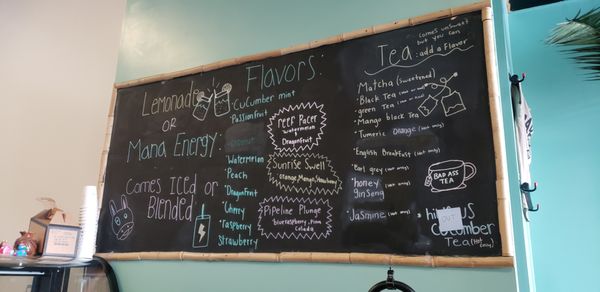 Lemonade
OR
Mana Energy:
Comes Iced or
Blended
Flavors:
Cucumber mint
Passionfruit
coconut
Watermelon
Peach
Dragonfruit
Cherry
raspberry
Strawberry
reef Pacer
watermelon
Dragonfruit
Sunrise Swell
orange, Mango, Strawberry
Pipeline Plunge
blueraspberry, Pina
Colada
Tea
comes unsweet
but you can
: add a Flavor
Matcha (sweetened)
Black Tea (iced or hot)
green Tea (iced or hot)
Mango black Tea
Tumeric orange (hot only)
English Breakfast (hot only)
Earl grey (hot only)
honey
ginseng (hot only)
Jasmine (hot only)
BAD ASS
TEA
OUT
cucumber
Tea (Hot)